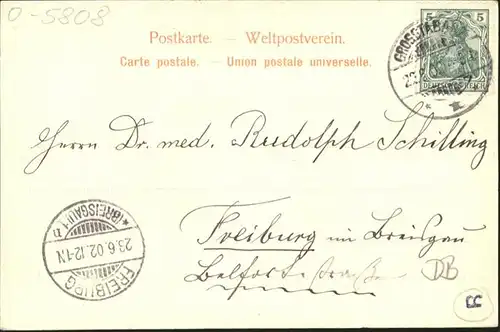 0-5808
5
Postkarte. — Weltpostverein.
Carte postale. — Union postale universelle.
GROSSTABARZ
Herrn Dr. med. Rudolph Schilling
Freiburg im Breisgau
Belfortstraße
DB
R
*(BREISGAU)1
23.6.02.12-1N
FREIBURG